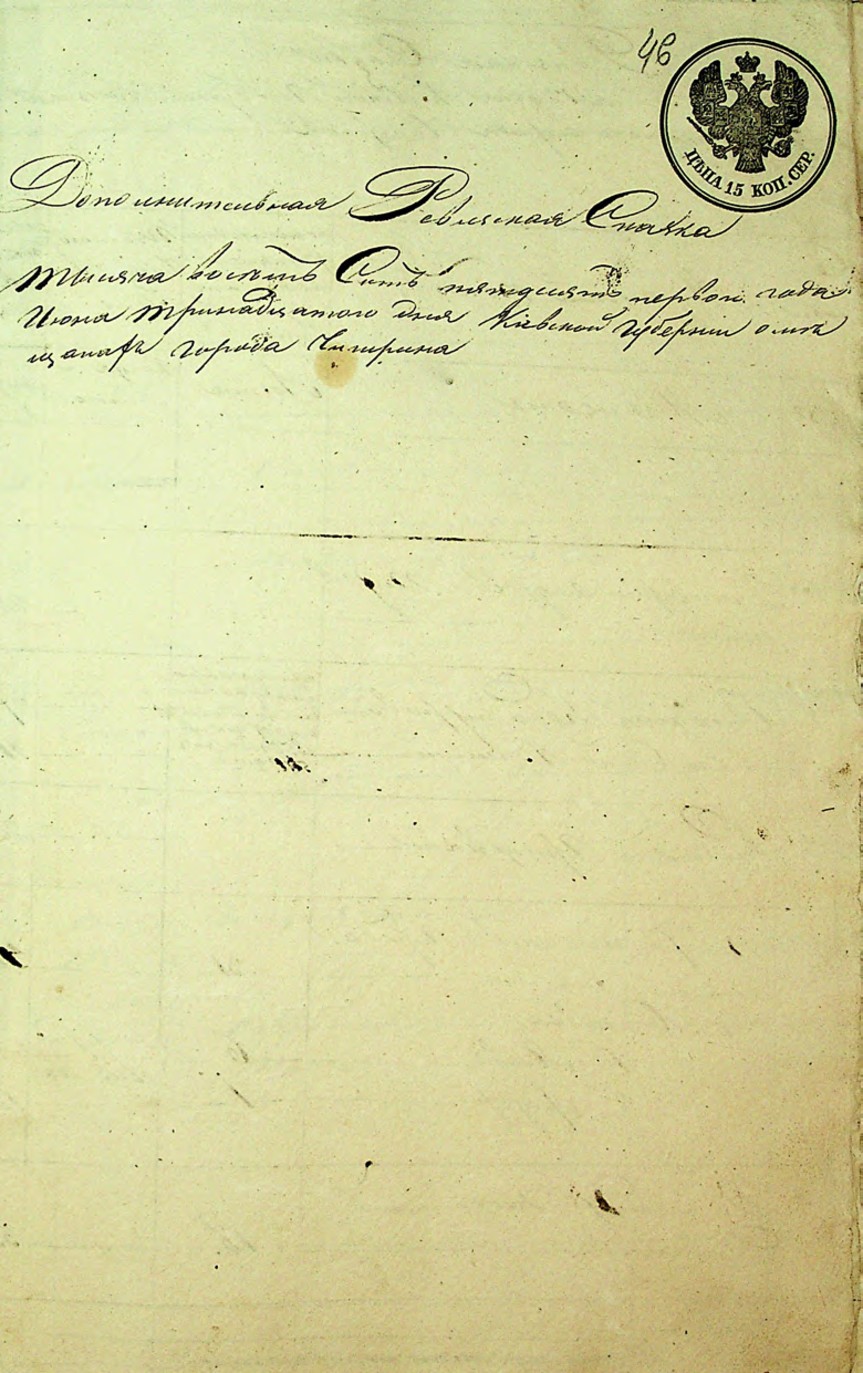 46
ЦѢНА 15 КОП. СЕР.
Дополнительная Ревизская Сказка
тысяча восемъ Сотъ пятдесятъ первого года
Июня тринадцатого дня Киевской губернии о мѣ
щанахъ города Чигрина